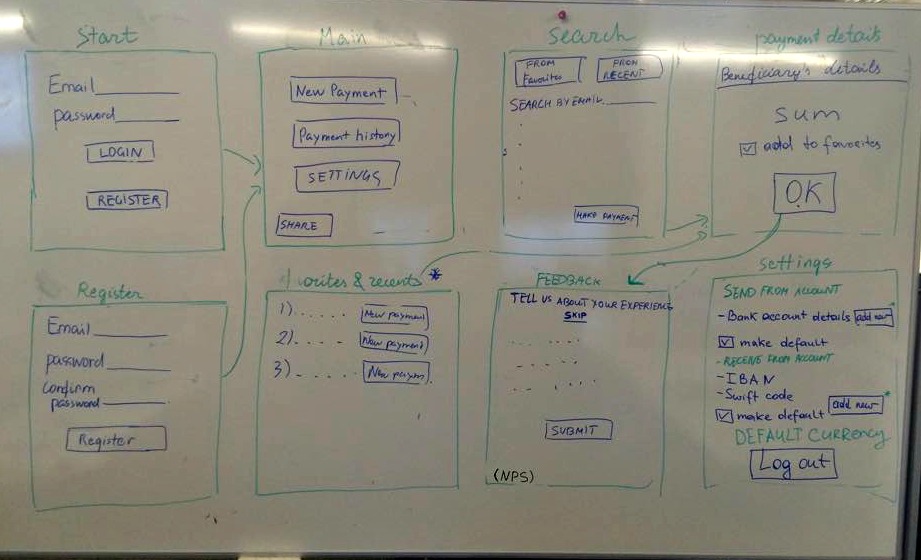 Start
Email
password
LOGIN
REGISTER
Main
New Payment
Payment history
SETTINGS
SHARE
Search
FROM
Favorites
FROM
RECENT
SEARCH BY EMAIL
MAKE PAYMENT
payment details
Beneficiary's details
sum
add to favorites
OK
Register
Email
password
Confirm
password
Register
& recents *
1) ..... New payment
2) .... New payment
3) ..... New paym.
FEEDBACK
TELL US ABOUT YOUR EXPERIENCE
SKIP
SUBMIT
(NPS)
settings
SEND FROM ACCOUNT
- Bank account details add new *
make default
- RECEIVE FROM ACCOUNT
- IBAN
- Swift code
add new *
make default
DEFAULT CURRENCY
Log out